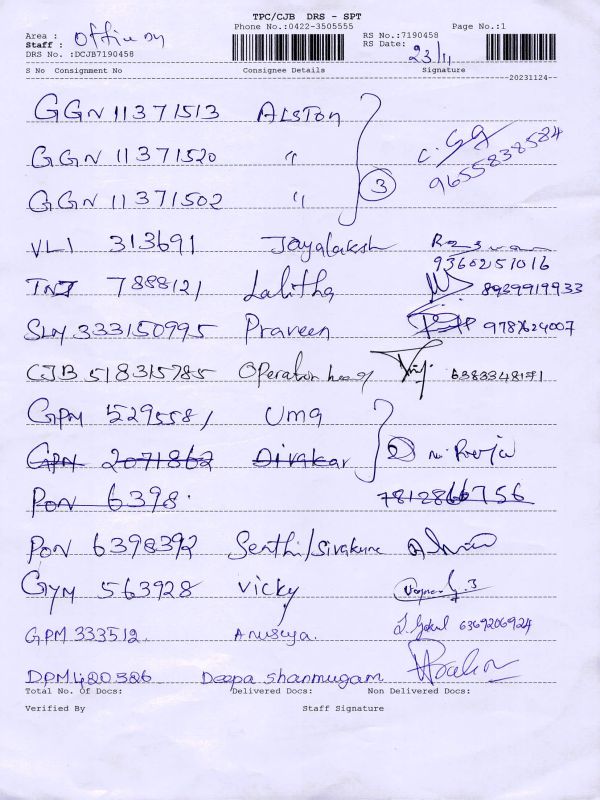 TPC/CJB DRS - SPT
Phone No.:0422-3505555 Page No.:1
Area : Office Dy RS No.:7190458
Staff : RS Date: 23/11
DRS No. :DCJB7190458
S No Consignment No Consignee Details Signature
20231124
GGN 11371513 Alston
GGN 11371520 "
GGN 11371502 " 3 9655838584
VLI 313691 Jayalaksh
9360251016
TNJ 7888121 Lalitha 8939919933
SLM 333150995 Praveen 9787624007
CJB 518315785 Operator 6383348171
GPM 529558/ Uma
GPN 2071862 Divakar 2
PON 6398. 7812866756
PON 6398392 Senthi/Sivakuma
GYM 563928 Vicky
GPM 333512 Anuseya. J. Gokul 6369206924
DPM 420326 Deepa Shanmugam
Total No. Of Docs: Delivered Docs: Non Delivered Docs:
Verified By Staff Signature